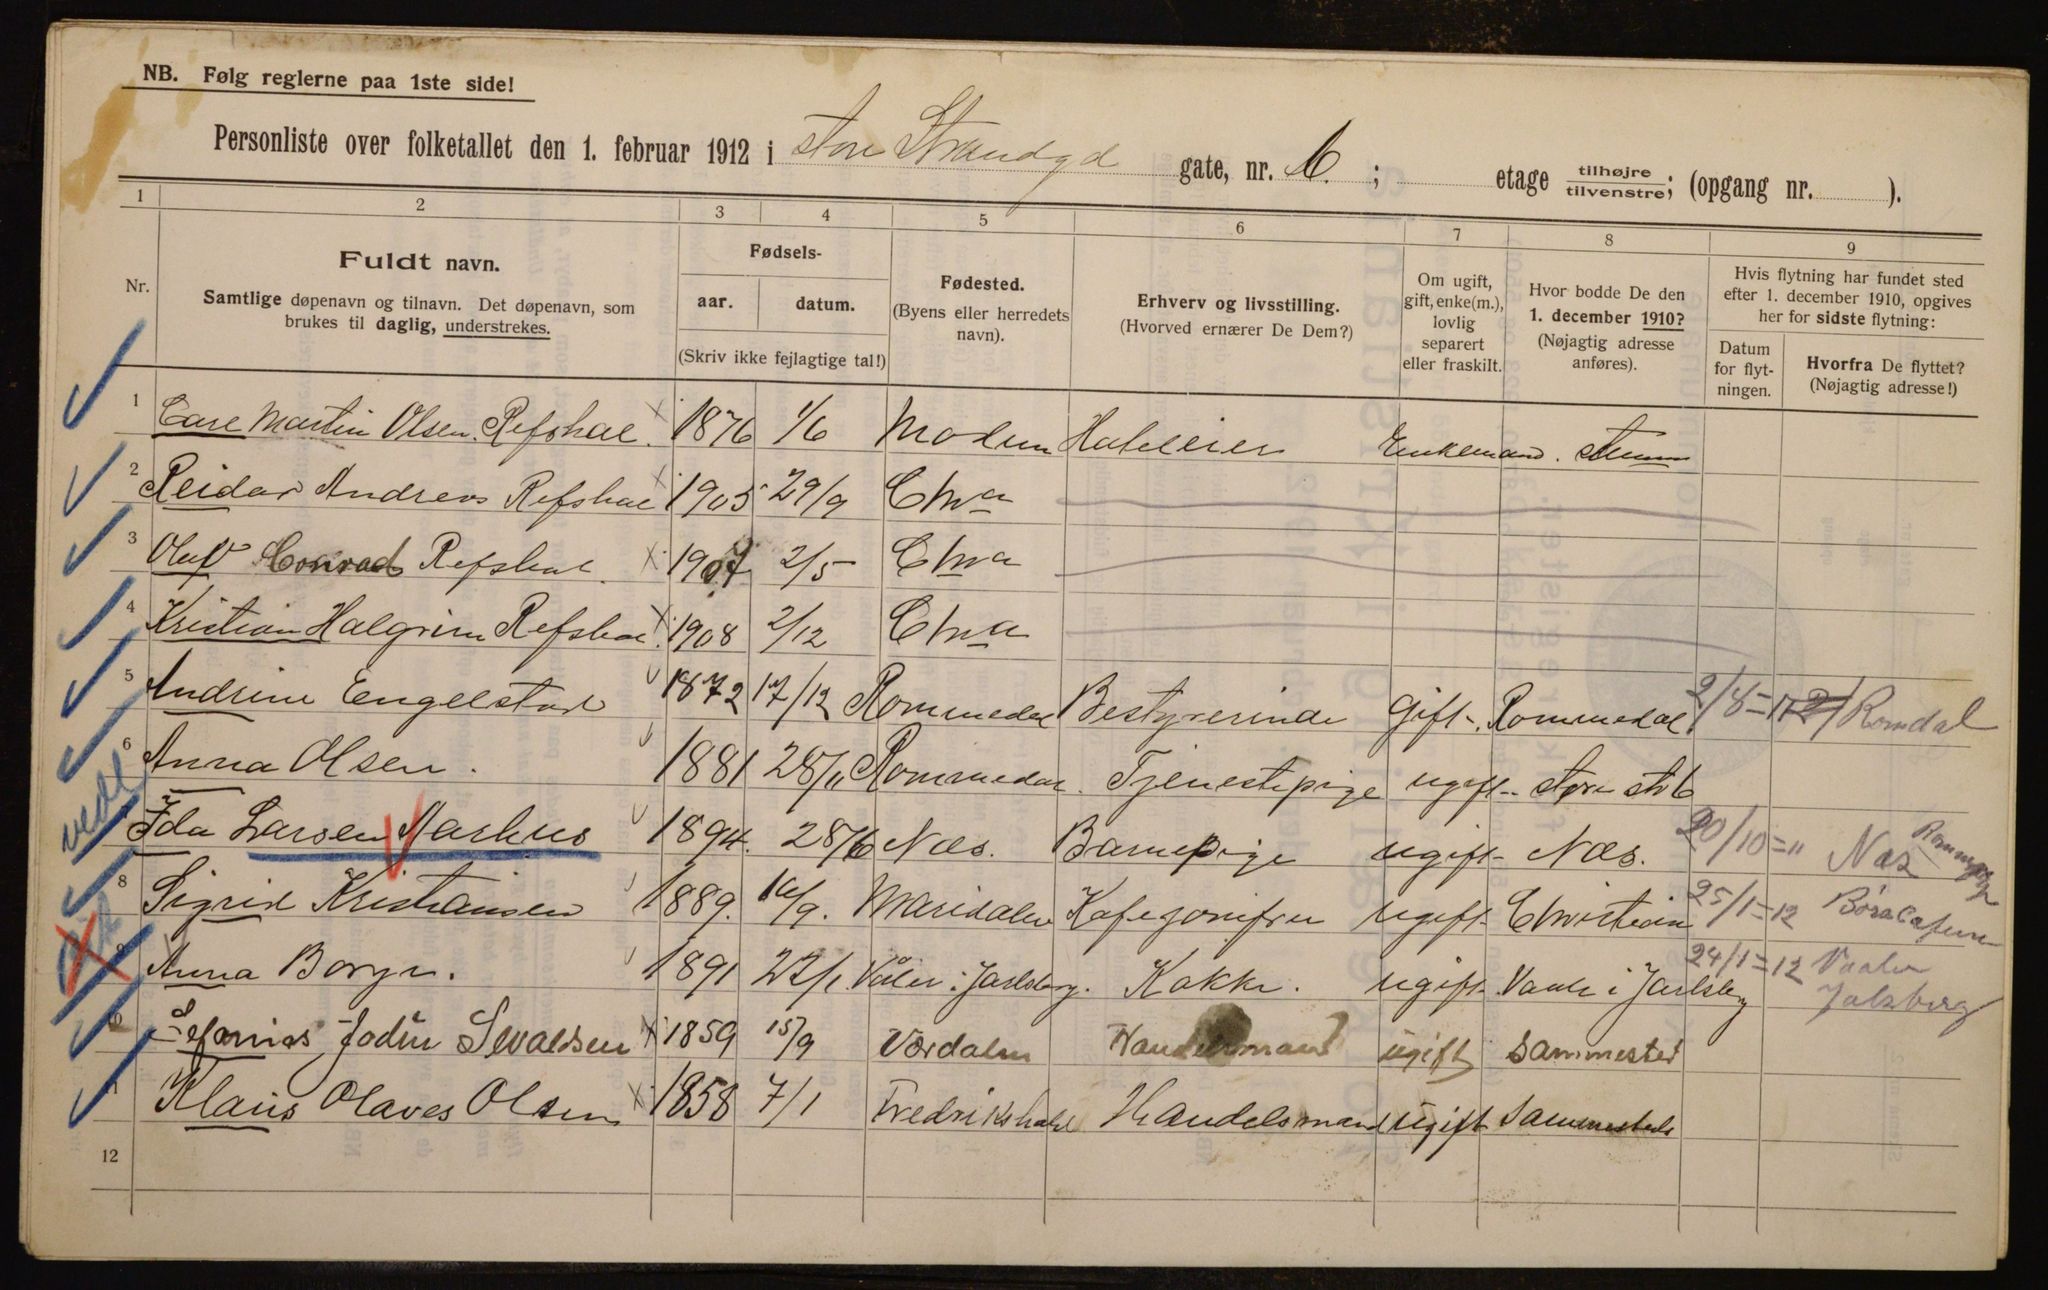 NB. Følg reglerne paa 1ste side!
Personliste over folketallet den 1. februar 1912 i Store Strandgd gate, nr. 6. ; etage tilhøjre/tilvenstre; (opgang nr. ).
1 2 3 4 5 6 7 8 9
Nr.
Fuldt navn.
Samtlige døpenavn og tilnavn. Det døpenavn, som
brukes til daglig, understrekes.
Fødsels-
aar. datum.
(Skriv ikke fejlagtige tal!)
Fødested.
(Byens eller herredets
navn).
Erhverv og livsstilling.
(Hvorved ernærer De Dem?)
Om ugift,
gift, enke(m.),
lovlig
separert
eller fraskilt.
Hvor bodde De den
1. december 1910?
(Nøjagtig adresse
anføres).
Hvis flytning har fundet sted
efter 1. december 1910, opgives
her for sidste flytning:
Datum
for flyt-
ningen.
Hvorfra De flyttet?
(Nøjagtig adresse!)
1 Carl Martin Olsen Refshal. 1876 1/6 Modum Hoteleier Enkemand.
2 Reidar Andreas Refshal 1905 29/9 Chra
3 Oluf Conrad Refshal. 1907 2/5 Chra
4 Kristian Halgrim Refshal 1908 2/12 Chra
5 Andrine Engelstad 1872 17/12 Rommedal Bestyrerinde gift Rommedal 2/8=11 Romdal
6 Anna Olsen. 1881 28/11 Rommedal. Tjenestepige ugift Store st 6
vedl Ida Larsen Aarhus 1894. 28/6 Næs. Barnepige ugift Næs. 20/10=11 Næs
8 Sigrid Kristiansen 1889. 16/9. Maridalen Kafejomfru ugift Christian 25/1=12
9 Anna Borge. 1891 22/1. Våler i Jarlsberg. Kokke. ugift Vaale i Jarlsberg 24/1=12 Vaaler
Jalsberg
10 Jodin Sevaldsen 1859 15/9 Værdalen Handelsmand ugift sammested
11 Klaus Olaves Olsen 1858 7/1 Fredrikshald Handelsmand ugift Sammesteds
12